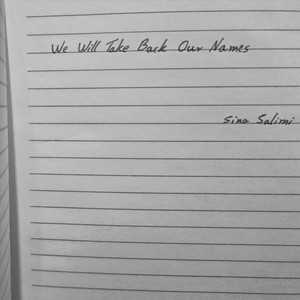 We Will Take Back Our Names
Sina Salimi